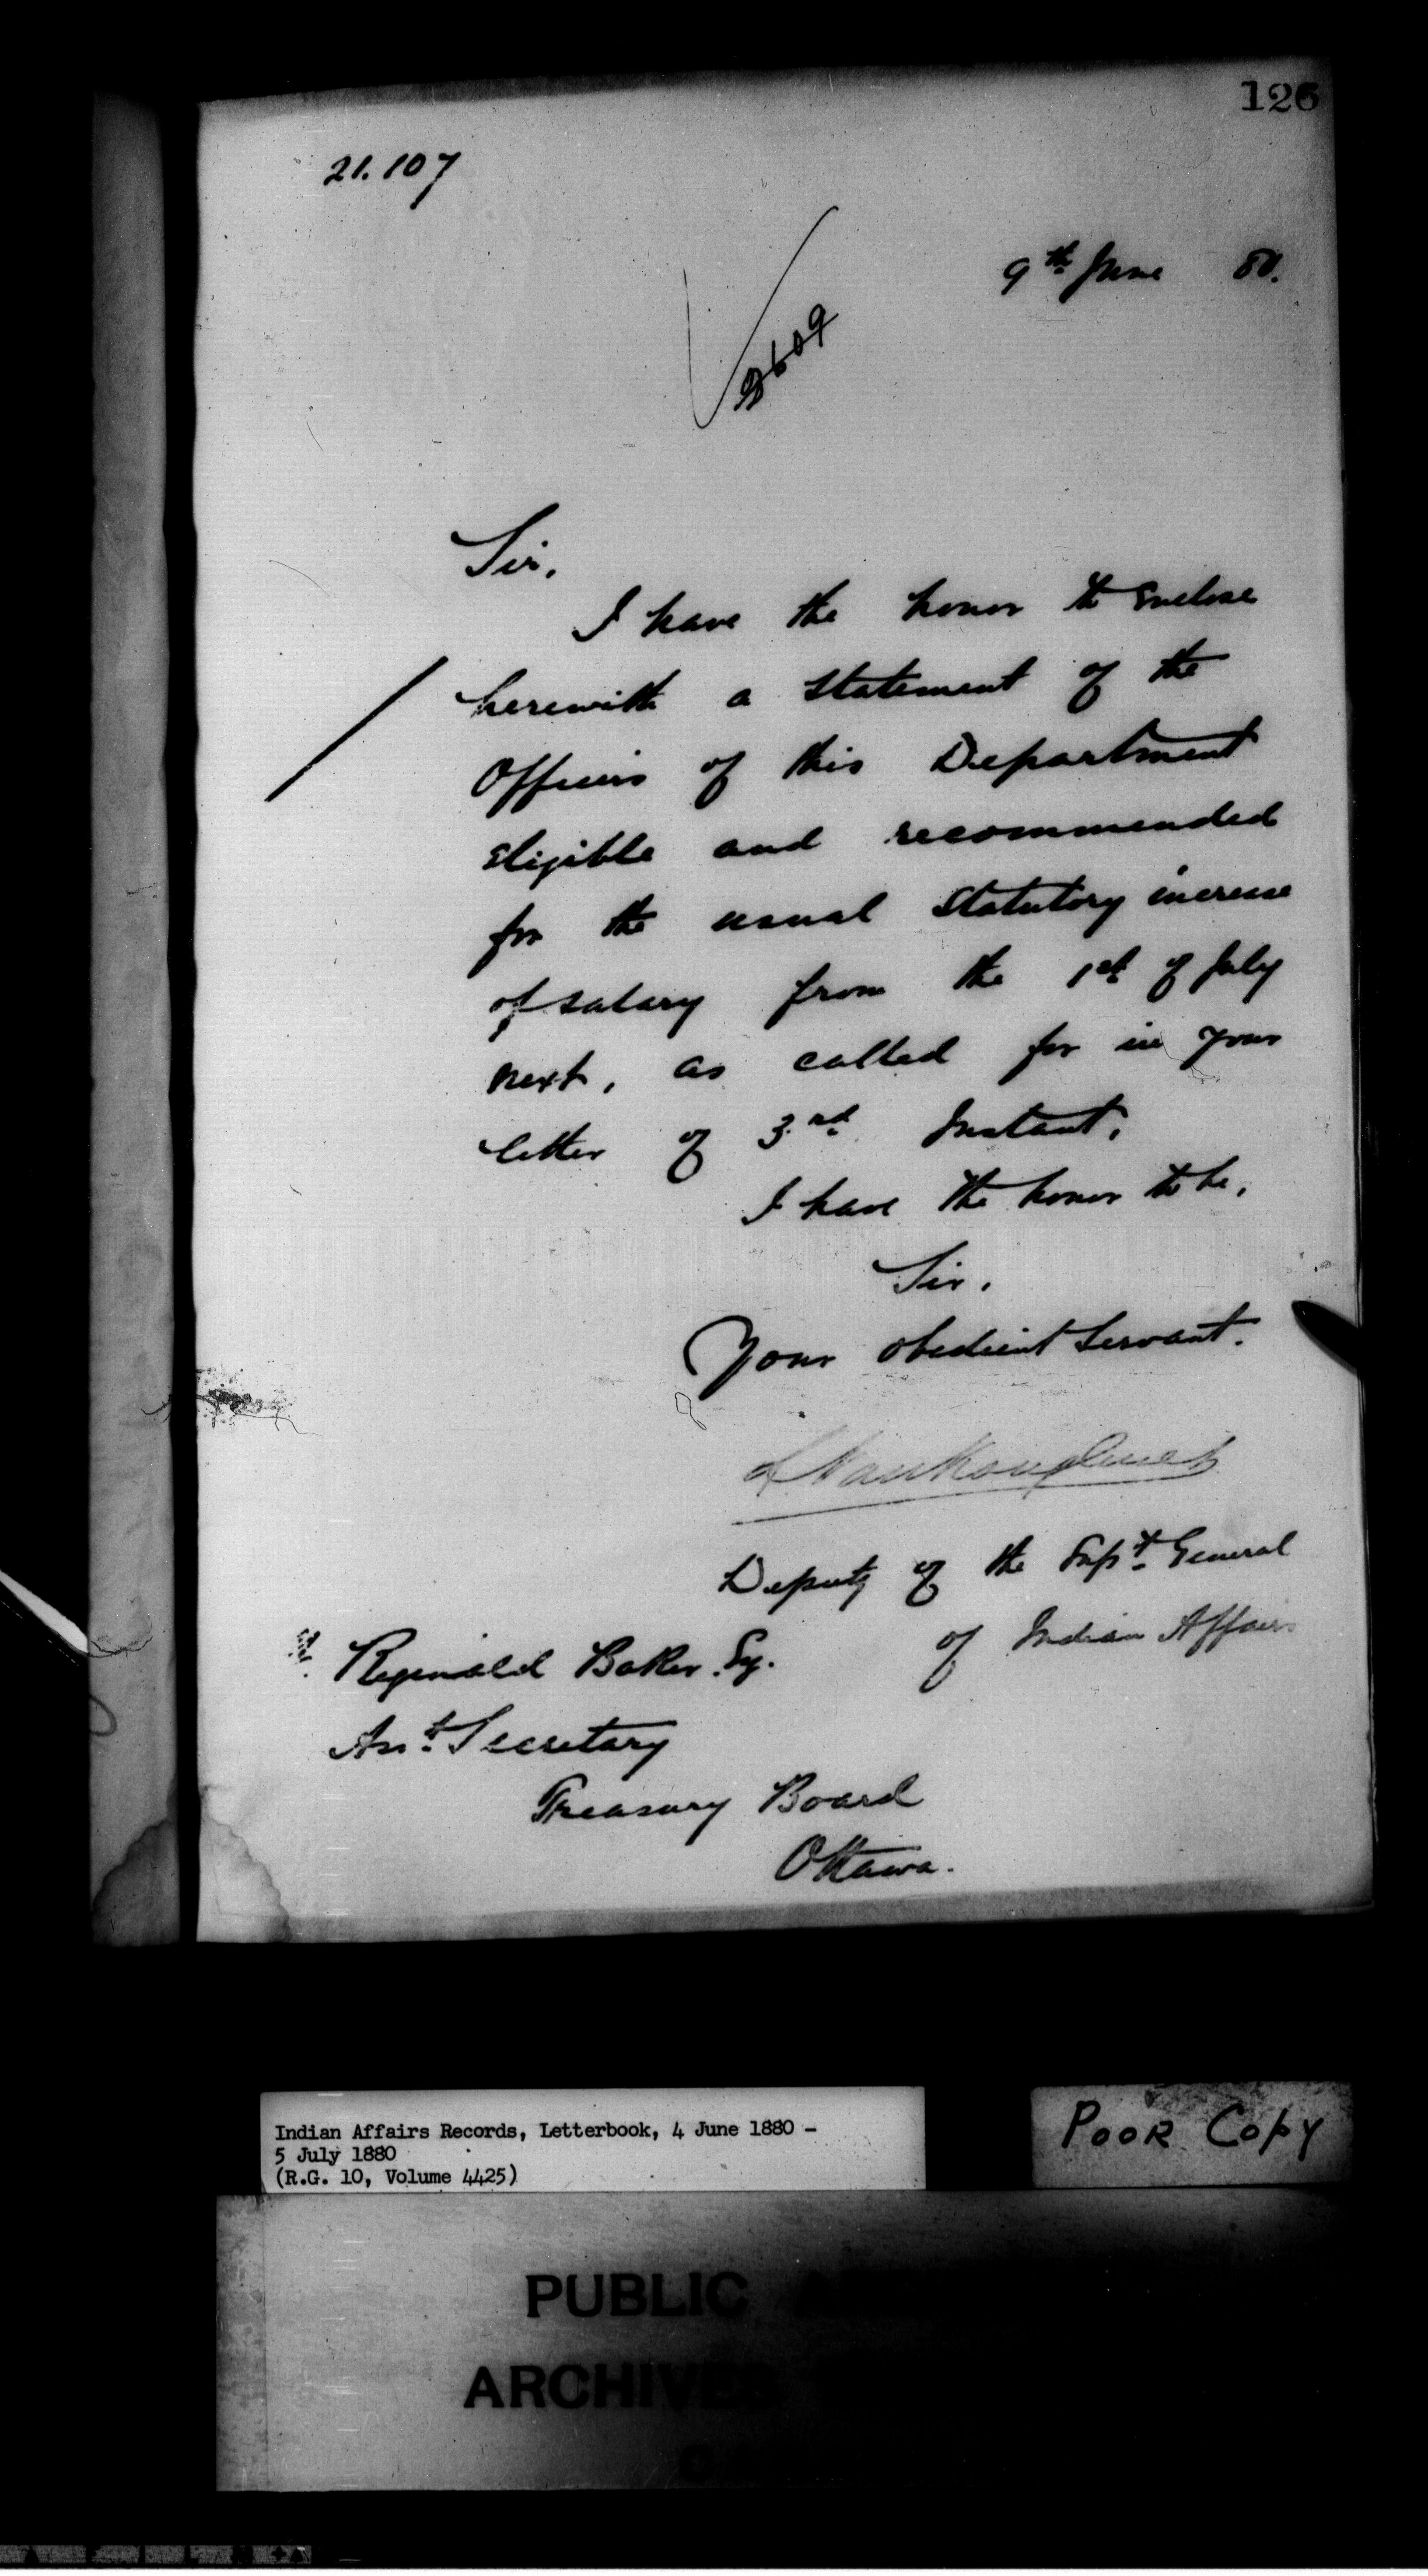 126
21.107
9th June 80.
Sir,
I have the honor to Enclose
herewith a Statement of the
Officers of this Department
Eligible and recommended
for the usual Statutory increase
of salary from the 1st of July
next, as called for in your
letter of 3rd Instant.
I have the honor to be,
Sir,
Your obedient Servant.
L VanKoughnet
Deputy of the Supt General
of Indian Affairs
Reginald Baker Esq.
Asst Secretary
Treasury Board
Ottawa.
Indian Affairs Records, Letterbook, 4 June 1880 -
5 July 1880
(R.G. 10, Volume 4425)
POOR COPY
PUBLIC
ARCHIVES